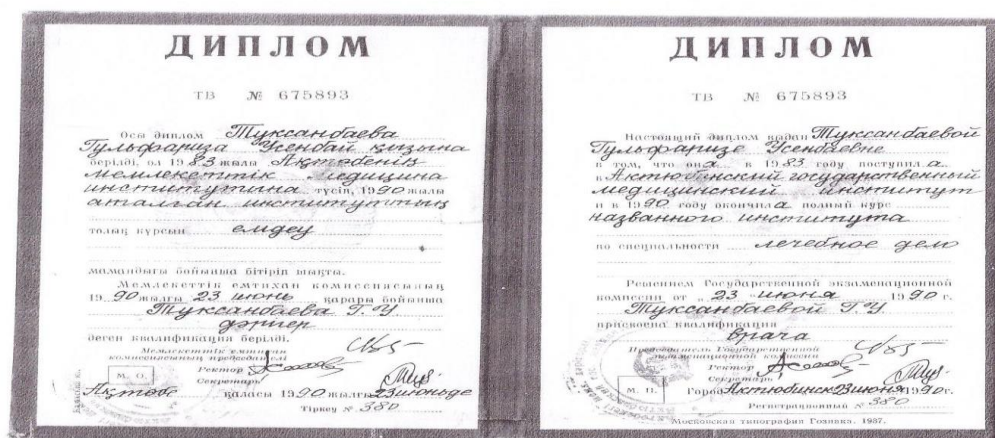 ДИПЛОМ
ТВ № 675893
Осы диплом Туксанбаева
Гульфариза Усенбай қызына
берілді, ол 1983 жылы Ақтөбенің
мемлекеттік медицина
институтына түсіп, 1990 жылы
аталған институттың
толық курсын емдеу
мамандығы бойынша бітіріп шықты.
Мемлекеттік емтихан комиссиясының
1990 жылғы 23 июнь қарары бойынша
Туксанбаева Г. У
дәрігер
деген квалификация берілді.
Мемлекеттік емтихан
комиссиясының председателі
Ректор
Секретарь
М. О.
Ақтөбе қаласы 1990 жылғы 23 июньде
Тіркеу № 380
ДИПЛОМ
ТВ № 675893
Настоящий диплом выдан Туксанбаевой
Гульфаризе Усенбаевне
в том, что она в 1983 году поступила
в Актюбинский государственный
медицинский институт
и в 1990 году окончила полный курс
названного института
по специальности лечебное дело
Решением Государственной экзаменационной
комиссии от „23" июня 1990 г.
Туксанбаевой Г. У
присвоена квалификация
врача
Председатель Государственной
экзаменационной комиссии
Ректор
Секретарь
М. П.
Город Актюбинск 23 июня 1990 г.
Регистрационный № 380
Московская типография Гознака. 1987.